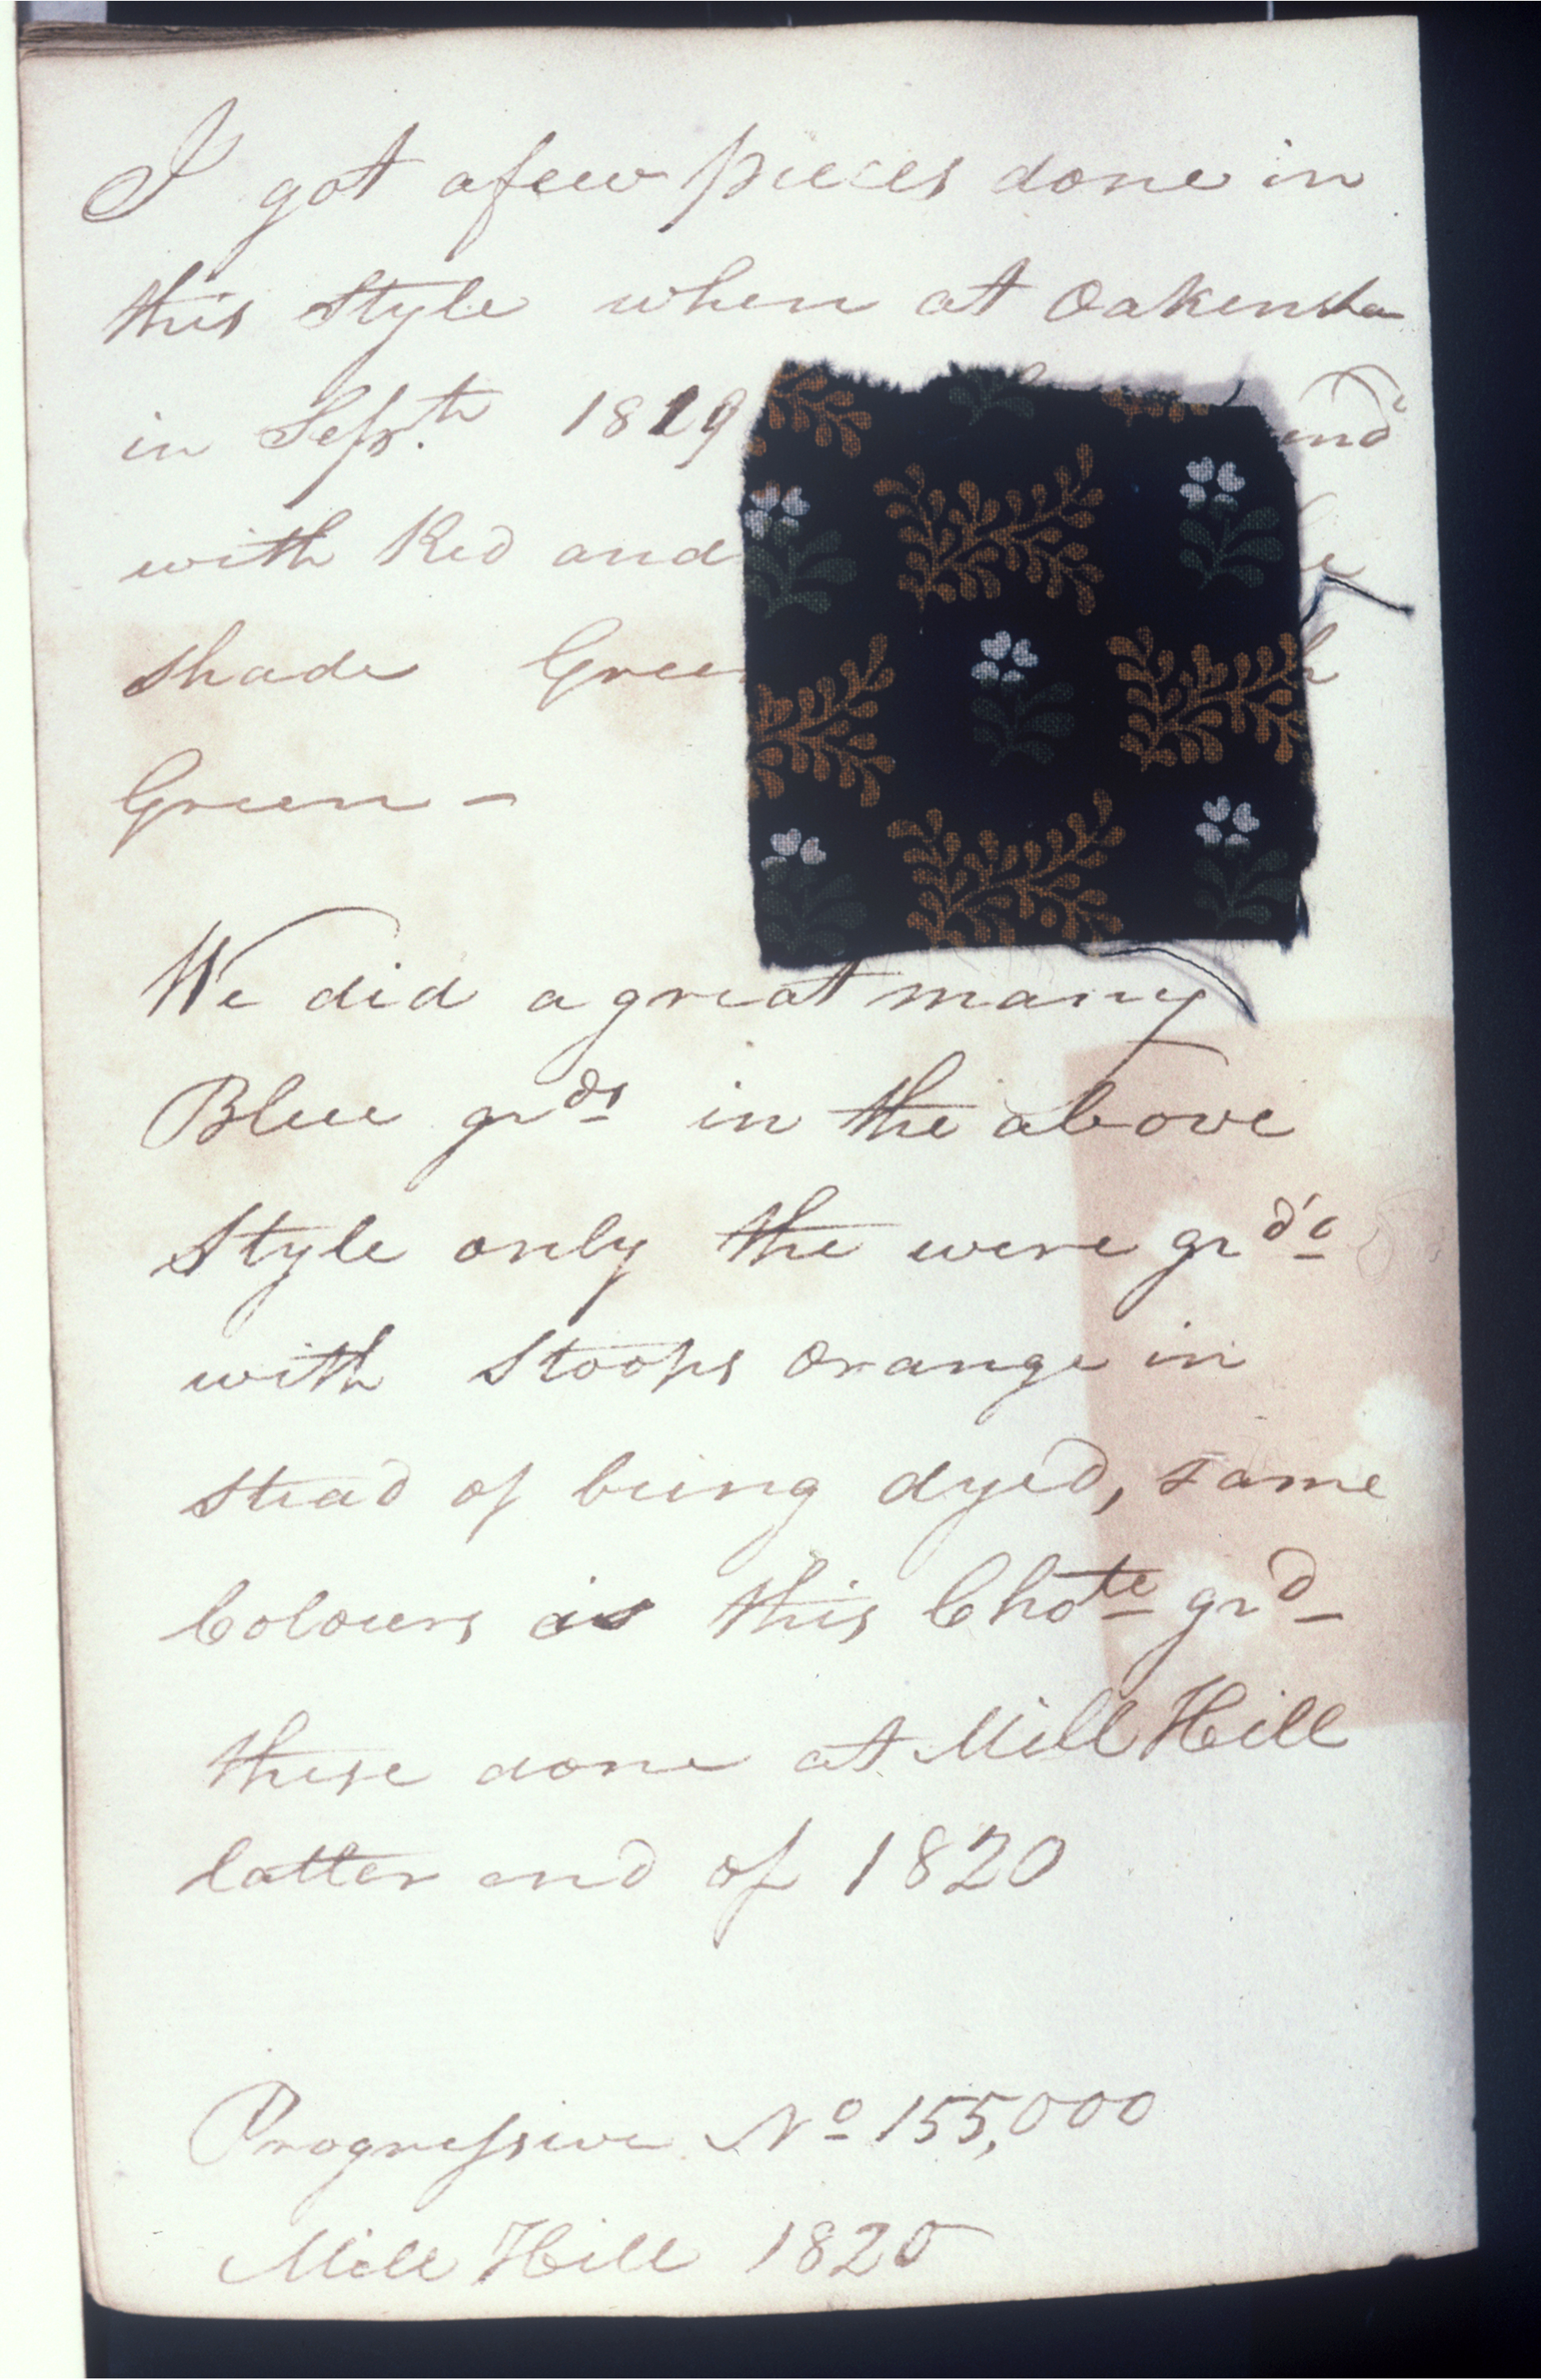 I got a few pieces done in
this Style when at Oakensha
in Sept.th 1819
with Red and
shade Green
Green –
We did a great many
Blue grds in the above
Style only the were grd'd
with Stoops Orange in
stead of being dyed, same
Colours as this Chote grd
these done at Mill Hill
latter end of 1820
Progressive No 155,000
Mill Hill 1820